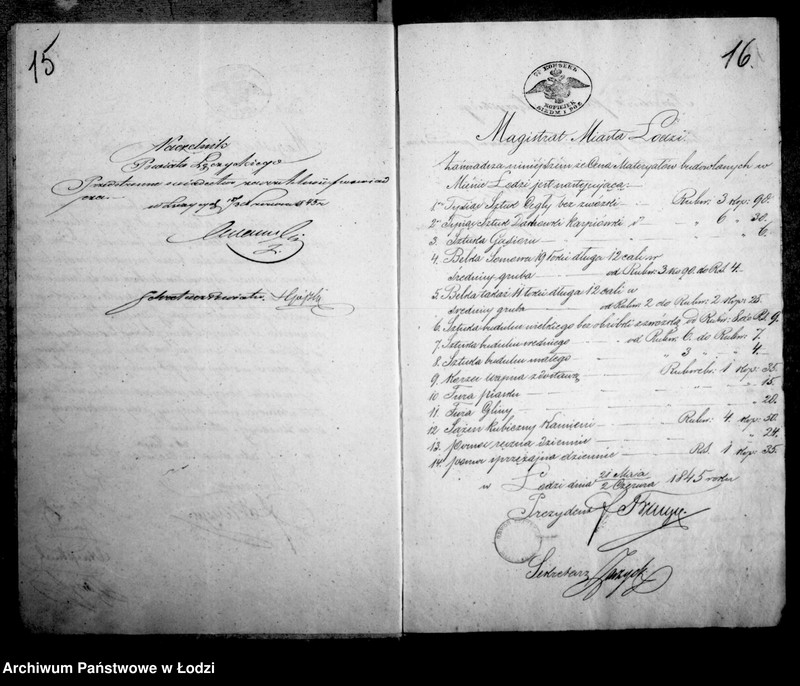 15
Naczelnik
Powiatu Łęczyckiego
w Łęczycy
16.
7½ KOPIEEK
KOPIEJEK
SIEDM I PÓŁ
Magistrat Miasta Łodzi.
Zaświadcza niniejszém że Cena Materyałów budowlanych w
Mieście Łodzi jest następująca:
1. Tysiąc Sztuk Cegły bez zwózki Rubsr. 3 kop: 90.
2. Tysiąc Sztuk Dachówki Karpiówki " 6 " 30.
3. Sztuka Gąsioru " 6.
4. Belka Sosnowa 19 łokci długa 12 cali w
średnicy gruba od Rubsr. 3 k 90. do RS. 4.
5. Belka takaż 11 łokci długa 12 cali w
średnicy gruba od Rubsr: 2 do Rubsr: 2 kop: 25.
6. Sztuka budulcu wielkiego bez obróbki z zwózką od Rubsr: 8 do RS. 9.
7. Sztuka budulcu średniego od Rubsr: 6. do Rubsr: 7.
8. Sztuka budulcu małego " 3 " " 4.
9. Korzec wapna z dostawą Rubsreb: 1 kop: 35.
10. Fura piasku " 15.
11. Fura Gliny " 20.
12. Sążeń kubiczny Kamieni Rubsr: 4. kop: 50.
13. pomoc ręczna dziennie " 24.
14. pomoc sprzężajna dziennie RS. 1 kop: 35.
w Łodzi dnia 21 Maja / 2 Czerwca 1845 roku
Prezydent
Sekretarz
Archiwum Państwowe w Łodzi